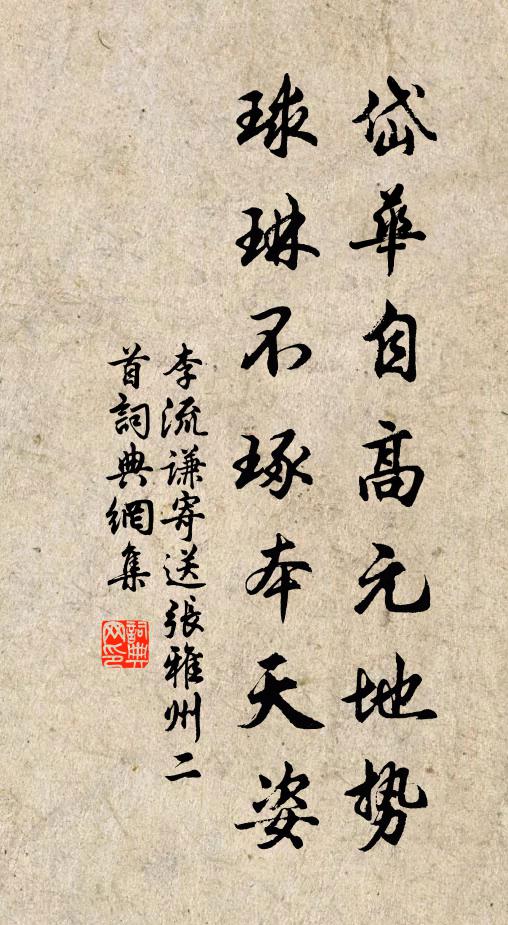 岱華自高元地勢
球琳不琢本天姿
李流謙寄送張雅州二
首詞典網集
詞典网印